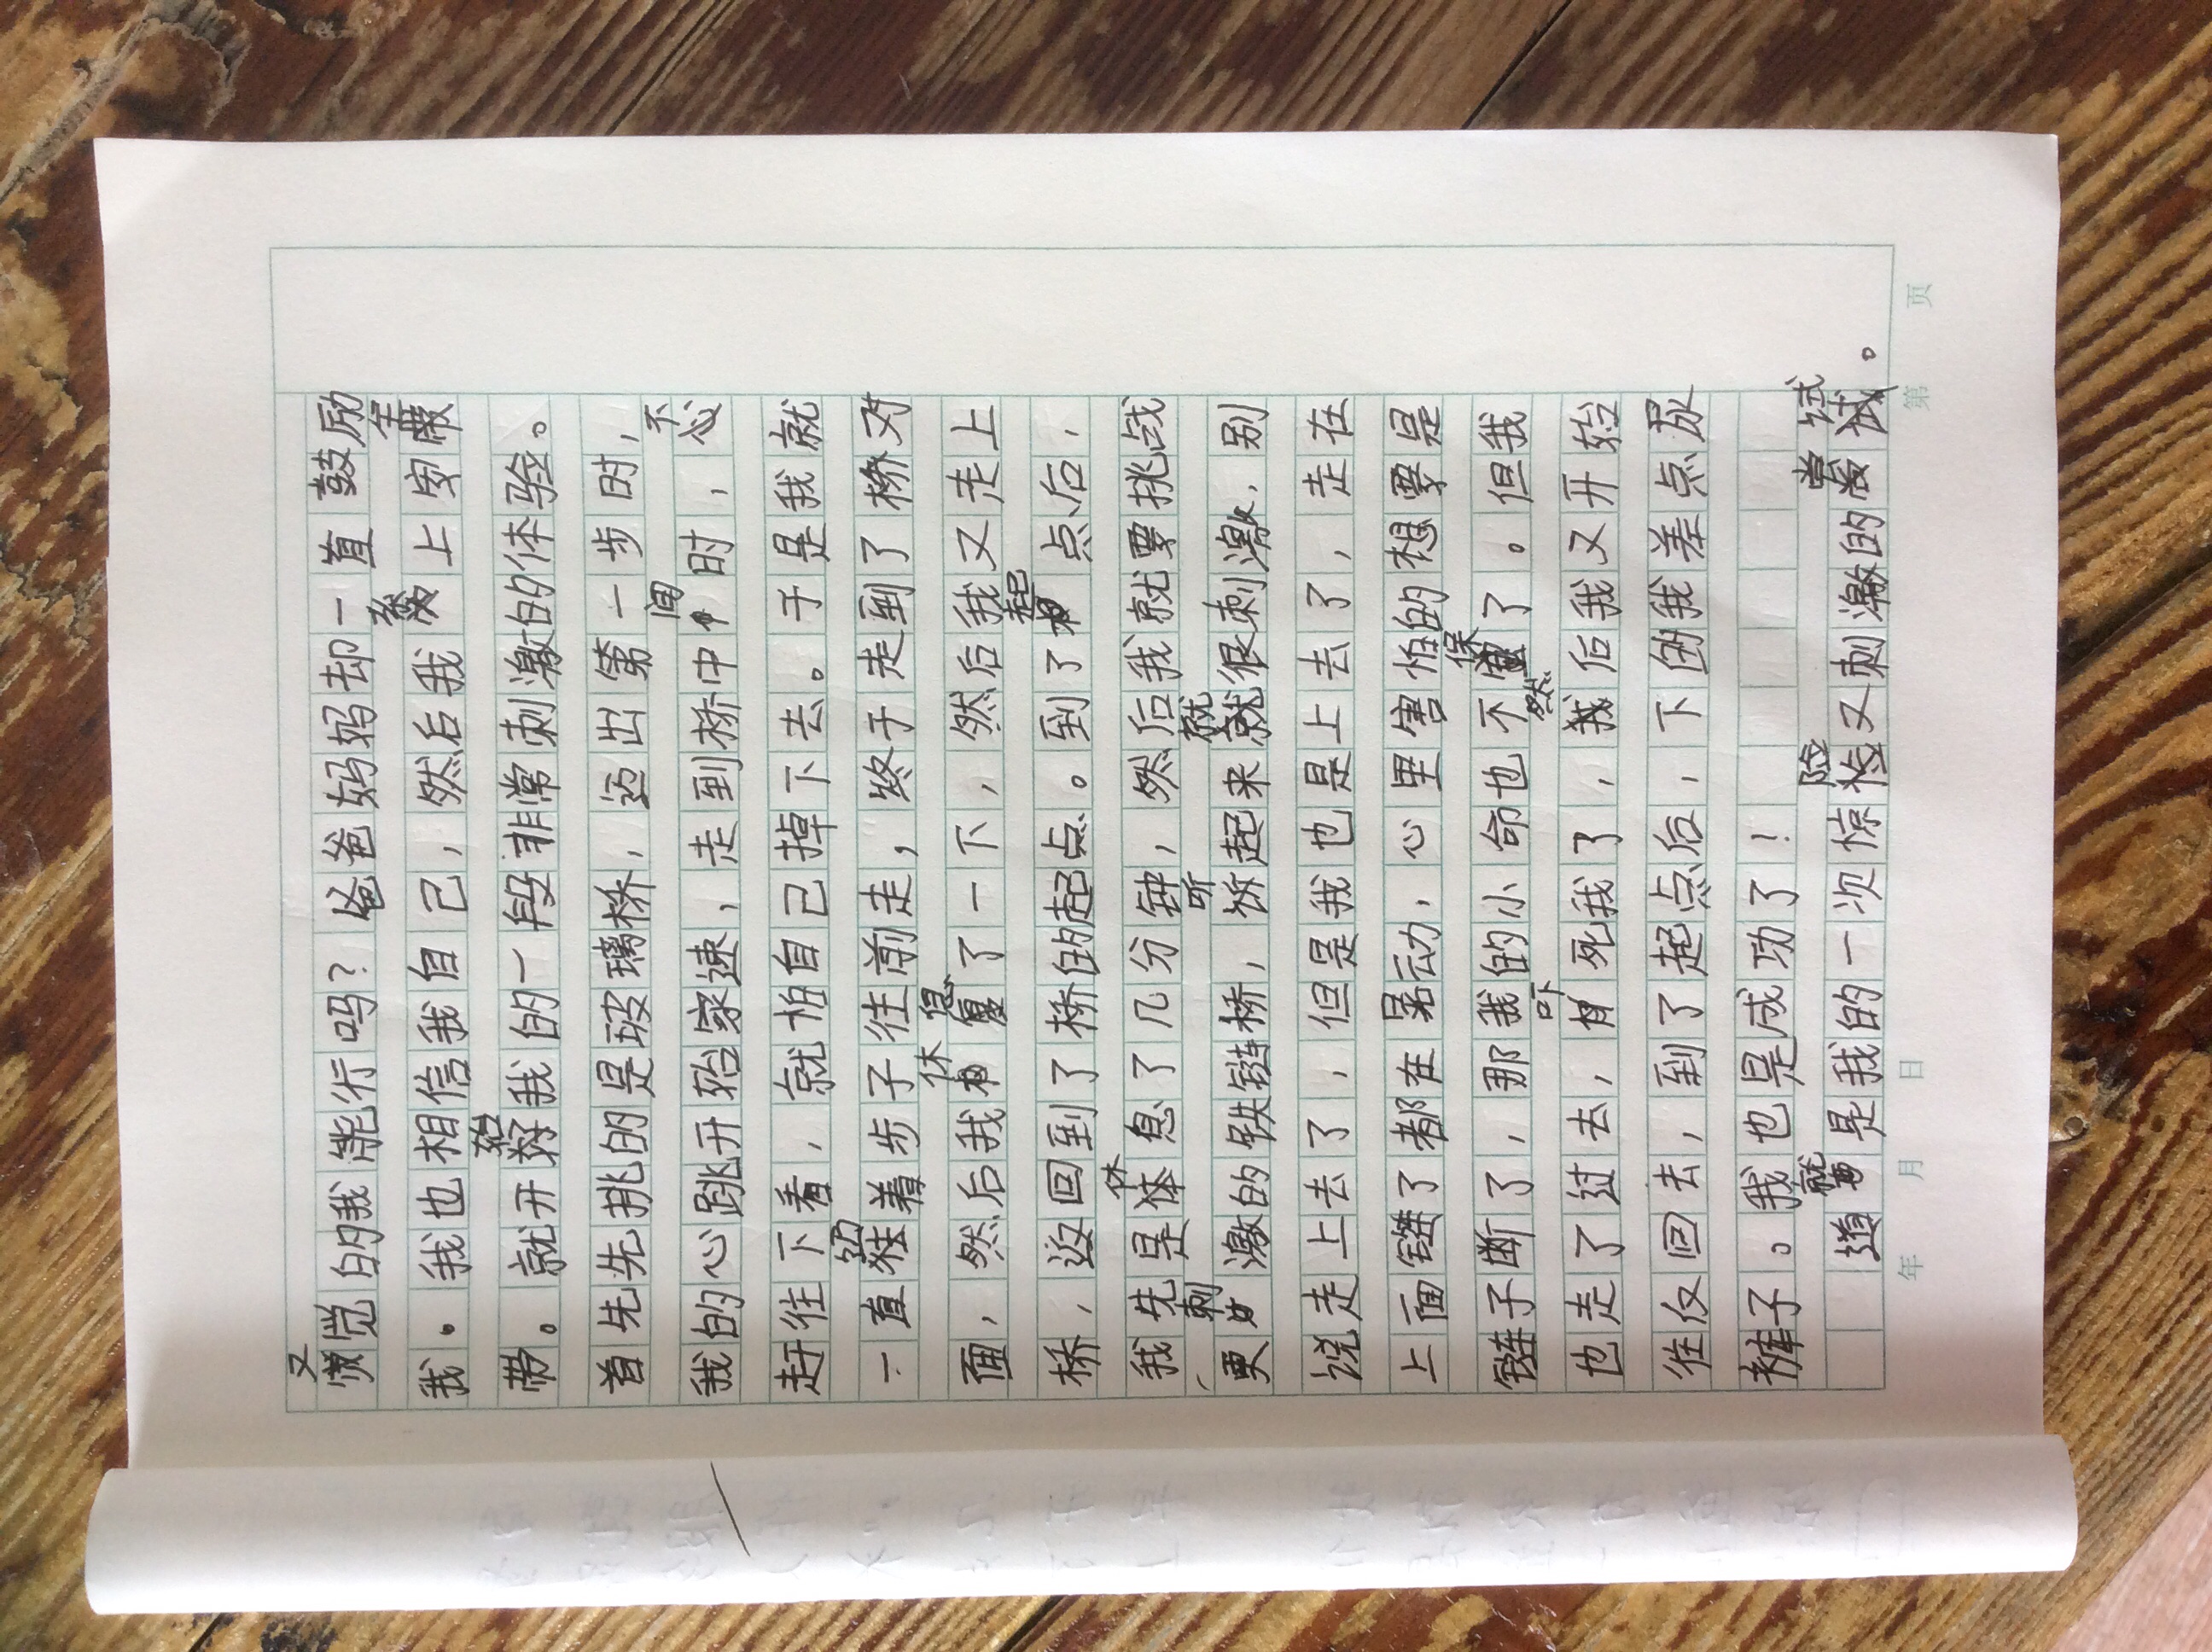 又觉的我能行吗？爸爸妈妈却一直鼓励
我。我也相信我自己，然后我系上安全
带。就开始我的一段非常刺激的体验。
首先先挑的是玻璃桥，迈出第一步时，
我的心跳开始家速，走到桥中间时，不心
赶往下看，就怕自己掉下去。于是我就
一直着步子往前走，终于走到了桥对
面，然后我休息了一下，然后我又走上
桥，返回到了桥的起点。到了起点后，
我先是休息了几分钟，然后我就要挑战
更刺激的铁链桥，听起来就很刺激，别
说走上去了，但是我也是上去了，走在
上面链了都在晃动，心里害怕的想要是
链子断了，那我的小命也不保了。但我
也走了过去，吓死我了，然后我又开始
往反回去，到了起点后，下的我差点尿
裤子。我也是成功了！
这就是我的一次惊险又刺激的尝试。
年 月 日 第 页